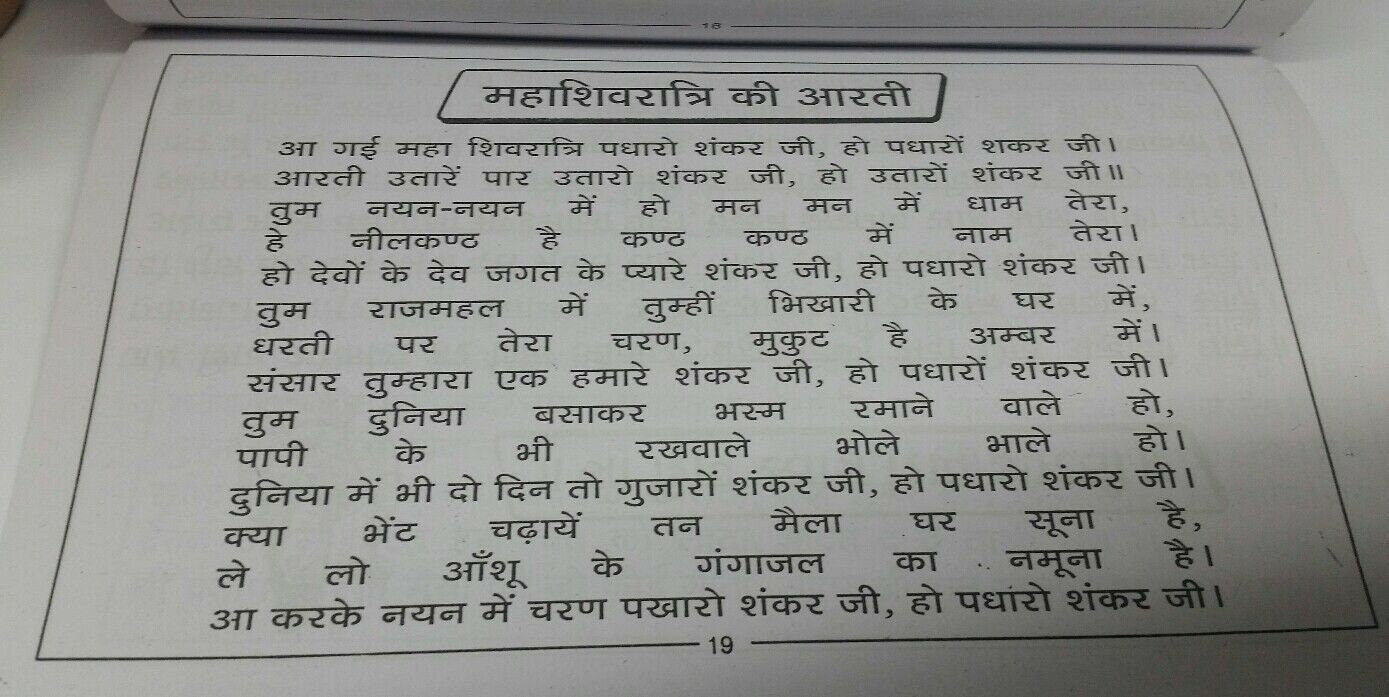 18
महाशिवरात्रि की आरती
आ गई महा शिवरात्रि पधारो शंकर जी, हो पधारों शकर जी।
आरती उतारें पार उतारो शंकर जी, हो उतारों शंकर जी॥
तुम नयन-नयन में हो मन मन में धाम तेरा,
हे नीलकण्ठ है कण्ठ कण्ठ में नाम तेरा।
हो देवों के देव जगत के प्यारे शंकर जी, हो पधारो शंकर जी।
तुम राजमहल में तुम्हीं भिखारी के घर में,
धरती पर तेरा चरण, मुकुट है अम्बर में।
संसार तुम्हारा एक हमारे शंकर जी, हो पधारों शंकर जी।
तुम दुनिया बसाकर भस्म रमाने वाले हो,
पापी के भी रखवाले भोले भाले हो।
दुनिया में भी दो दिन तो गुजारों शंकर जी, हो पधारो शंकर जी।
क्या भेंट चढ़ायें तन मैला घर सूना है,
ले लो आँशू के गंगाजल का नमूना है।
आ करके नयन में चरण पखारो शंकर जी, हो पधांरो शंकर जी।
19